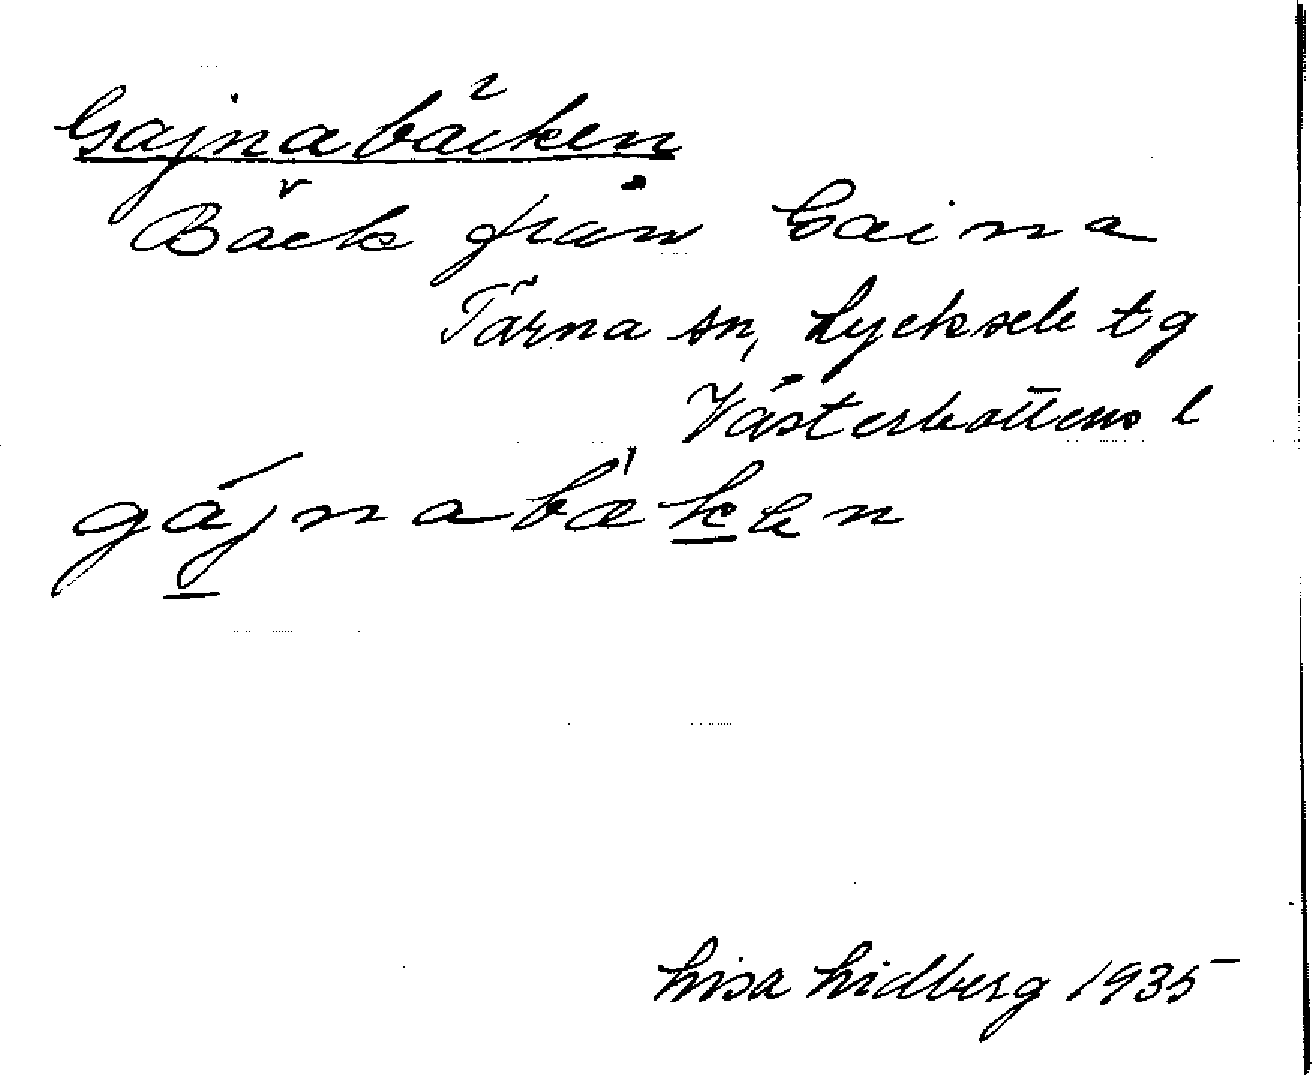 Gajnabäcken
Bäck från Gaina
Tärna sn, Lycksele tg
Västerbottens l
gájnabæken
Lisa Lidberg 1935